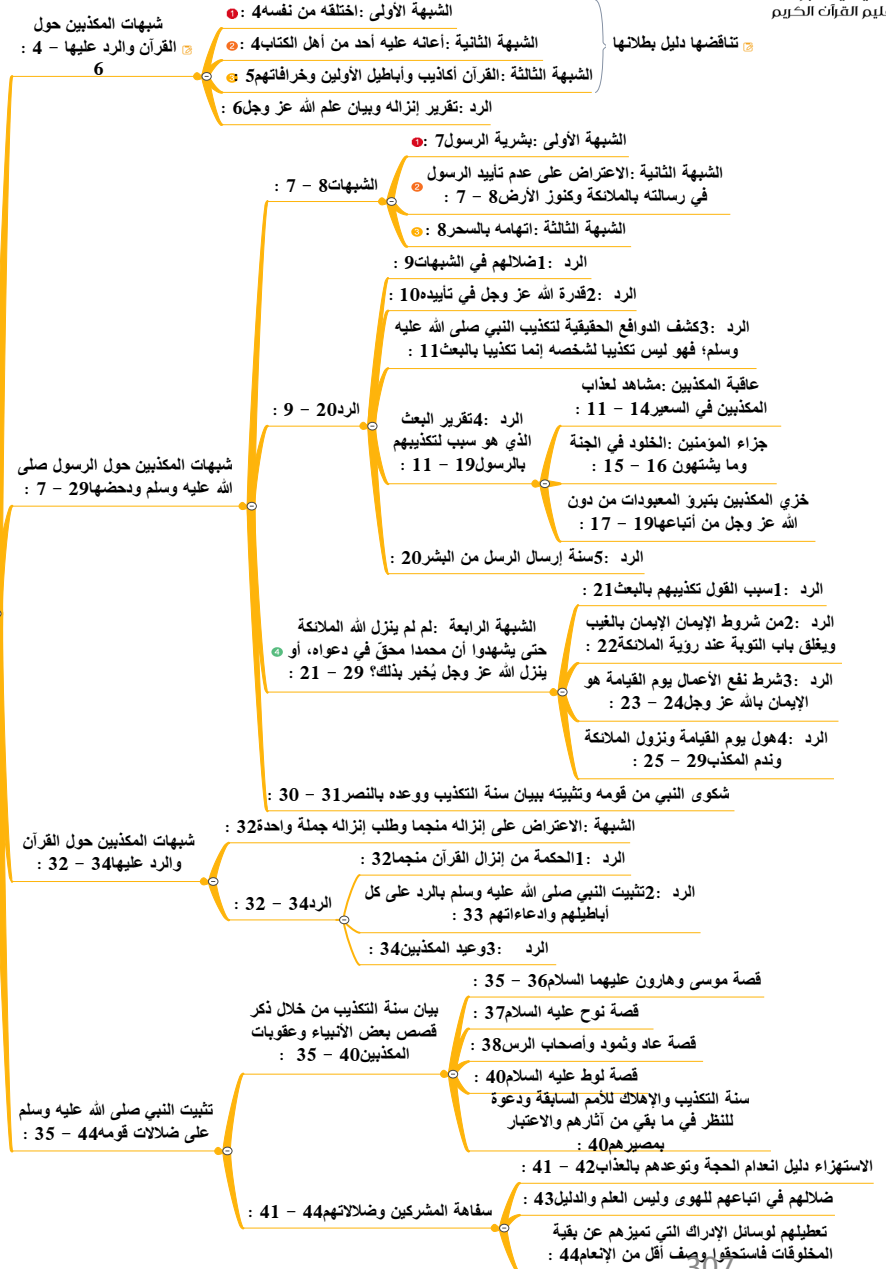 ليم القرآن الكريم
شبهات المكذبين حول
القرآن والرد عليها – 4 :
6
الشبهة الأولى :اختلقه من نفسه4 :
1
الشبهة الثانية :أعانه عليه أحد من أهل الكتاب4 :
2
الشبهة الثالثة :القرآن أكاذيب وأباطيل الأولين وخرافاتهم5 :
تناقضها دليل بطلانها
الرد :تقرير إنزاله وبيان علم الله عز وجل6 :
شبهات المكذبين حول الرسول صلى
الله عليه وسلم ودحضها29 – 7 :
الشبهات8 – 7 :
الشبهة الأولى :بشرية الرسول7 :
1
الشبهة الثانية :الاعتراض على عدم تأييد الرسول
في رسالته بالملائكة وكنوز الأرض8 – 7 :
2
الشبهة الثالثة :اتهامه بالسحر8 :
3
الرد20 – 9 :
الرد :1ضلالهم في الشبهات9 :
الرد :2قدرة الله عز وجل في تأييده10 :
الرد :3كشف الدوافع الحقيقية لتكذيب النبي صلى الله عليه
وسلم؛ فهو ليس تكذيبا لشخصه إنما تكذيبا بالبعث11 :
الرد :4تقرير البعث
الذي هو سبب لتكذيبهم
بالرسول19 – 11 :
عاقبة المكذبين :مشاهد لعذاب
المكذبين في السعير14 – 11 :
جزاء المؤمنين :الخلود في الجنة
وما يشتهون 16 – 15 :
خزي المكذبين بتبرؤ المعبودات من دون
الله عز وجل من أتباعها19 – 17 :
الرد :5سنة إرسال الرسل من البشر20 :
الشبهة الرابعة :لم لم ينزل الله الملائكة
حتى يشهدوا أن محمدا محقّ في دعواه، أو
ينزل الله عز وجل يُخبر بذلك؟ 29 – 21 :
4
الرد :1سبب القول تكذيبهم بالبعث21 :
الرد :2من شروط الإيمان الإيمان بالغيب
ويغلق باب التوبة عند رؤية الملائكة22 :
الرد :3شرط نفع الأعمال يوم القيامة هو
الإيمان بالله عز وجل24 – 23 :
الرد :4هول يوم القيامة ونزول الملائكة
وندم المكذب29 – 25 :
شكوى النبي من قومه وتثبيته ببيان سنة التكذيب ووعده بالنصر31 – 30 :
شبهات المكذبين حول القرآن
والرد عليها34 – 32 :
الشبهة :الاعتراض على إنزاله منجما وطلب إنزاله جملة واحدة32 :
الرد34 – 32 :
الرد :1الحكمة من إنزال القرآن منجما32 :
الرد :2تثبيت النبي صلى الله عليه وسلم بالرد على كل
أباطيلهم وادعاءاتهم 33 :
الرد :3وعيد المكذبين34 :
تثبيت النبي صلى الله عليه وسلم
على ضلالات قومه44 – 35 :
بيان سنة التكذيب من خلال ذكر
قصص بعض الأنبياء وعقوبات
المكذبين40 – 35 :
قصة موسى وهارون عليهما السلام36 – 35 :
قصة نوح عليه السلام37 :
قصة عاد وثمود وأصحاب الرس38 :
قصة لوط عليه السلام40 :
سنة التكذيب والإهلاك للأمم السابقة ودعوة
للنظر في ما بقي من آثارهم والاعتبار
بمصيرهم40 :
سفاهة المشركين وضلالاتهم44 – 41 :
الاستهزاء دليل انعدام الحجة وتوعدهم بالعذاب42 – 41 :
ضلالهم في اتباعهم للهوى وليس العلم والدليل43 :
تعطيلهم لوسائل الإدراك التي تميزهم عن بقية
المخلوقات فاستحقوا وصف أقل من الإنعام44 :
307